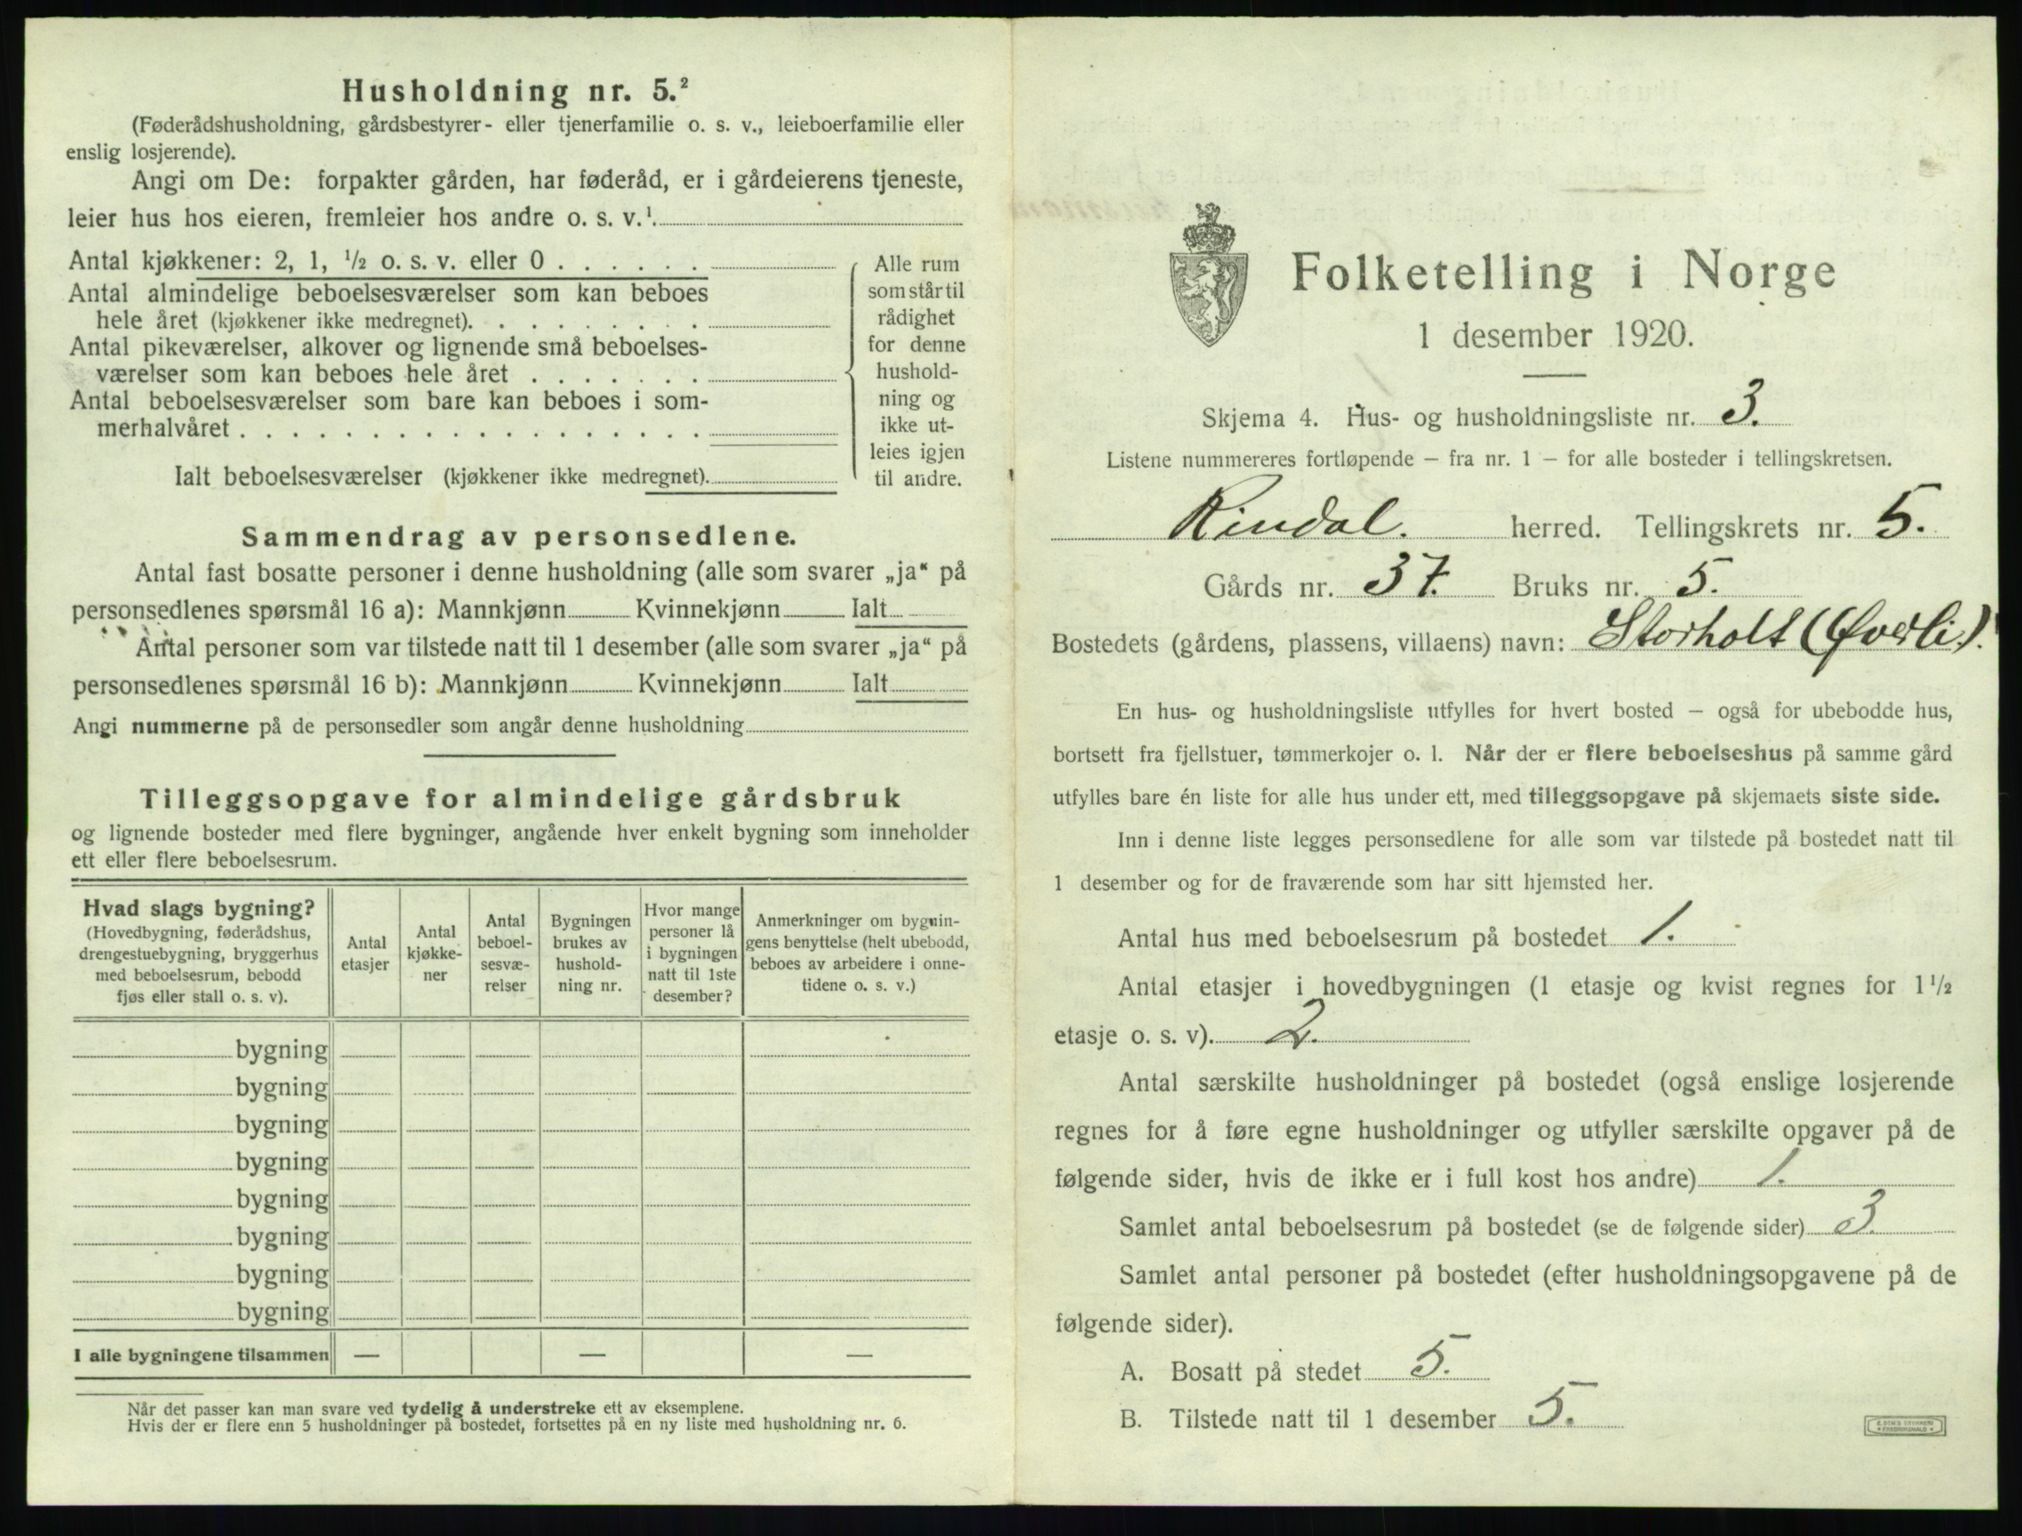 Husholdning nr. 5.²
(Føderådshusholdning, gårdsbestyrer- eller tjenerfamilie o. s. v., leieboerfamilie eller
enslig losjerende).
Angi om De: forpakter gården, har føderåd, er i gårdeierens tjeneste,
leier hus hos eieren, fremleier hos andre o. s. v.¹.
Antal kjøkkener: 2, 1, ½ o. s. v. eller 0 . . . . . .
Antal almindelige beboelsesværelser som kan beboes
hele året (kjøkkener ikke medregnet). . . . . . . . .
Antal pikeværelser, alkover og lignende små beboelses-
værelser som kan beboes hele året . . . . . . .
Antal beboelsesværelser som bare kan beboes i som-
merhalvåret . . . . . . . . . . . . . . . . . .
Ialt beboelsesværelser (kjøkkener ikke medregnet).
Alle rum
som står til
rådighet
for denne
hushold-
ning og
ikke ut-
leies igjen
til andre.
Sammendrag av personsedlene.
Antal fast bosatte personer i denne husholdning (alle som svarer „ja“ på
personsedlenes spørsmål 16 a): Mannkjønn Kvinnekjønn Ialt
Antal personer som var tilstede natt til 1 desember (alle som svarer „ja“ på
personsedlenes spørsmål 16 b): Mannkjønn Kvinnekjønn Ialt
Angi nummerne på de personsedler som angår denne husholdning
Tilleggsopgave for almindelige gårdsbruk
og lignende bosteder med flere bygninger, angående hver enkelt bygning som inneholder
ett eller flere beboelsesrum.
Hvad slags bygning?
(Hovedbygning, føderådshus,
drengestuebygning, bryggerhus
med beboelsesrum, bebodd
fjøs eller stall o. s. v).
Antal
etasjer
Antal
kjøkke-
ner
Antal
beboel-
sesvæ-
relser
Bygningen
brukes av
hushold-
ning nr.
Hvor mange
personer lå
i bygningen
natt til 1ste
desember?
Anmerkninger om bygnin-
gens benyttelse (helt ubebodd,
beboes av arbeidere i onne-
tidene o. s. v.)
bygning
bygning
bygning
bygning
bygning
bygning
bygning
bygning
I alle bygningene tilsammen — — —
Når det passer kan man svare ved tydelig å understreke ett av eksemplene.
Hvis der er flere enn 5 husholdninger på bostedet, fortsettes på en ny liste med husholdning nr. 6.
Folketelling i Norge
1 desember 1920.
Skjema 4. Hus- og husholdningsliste nr. 3.
Listene nummereres fortløpende – fra nr. 1 – for alle bosteder i tellingskretsen.
Rindal. herred. Tellingskrets nr. 5.
Gårds nr. 37. Bruks nr. 5.
Bostedets (gårdens, plassens, villaens) navn: Storholt (Øverli).
En hus- og husholdningsliste utfylles for hvert bosted – også for ubebodde hus,
bortsett fra fjellstuer, tømmerkojer o. l. Når der er flere beboelseshus på samme gård
utfylles bare én liste for alle hus under ett, med tilleggsopgave på skjemaets siste side.
Inn i denne liste legges personsedlene for alle som var tilstede på bostedet natt til
1 desember og for de fraværende som har sitt hjemsted her.
Antal hus med beboelsesrum på bostedet 1.
Antal etasjer i hovedbygningen (1 etasje og kvist regnes for 1½
etasje o. s. v). 2.
Antal særskilte husholdninger på bostedet (også enslige losjerende
regnes for å føre egne husholdninger og utfyller særskilte opgaver på de
følgende sider, hvis de ikke er i full kost hos andre) 1.
Samlet antal beboelsesrum på bostedet (se de følgende sider) 3.
Samlet antal personer på bostedet (efter husholdningsopgavene på de
følgende sider).
A. Bosatt på stedet 5.
B. Tilstede natt til 1 desember 5.